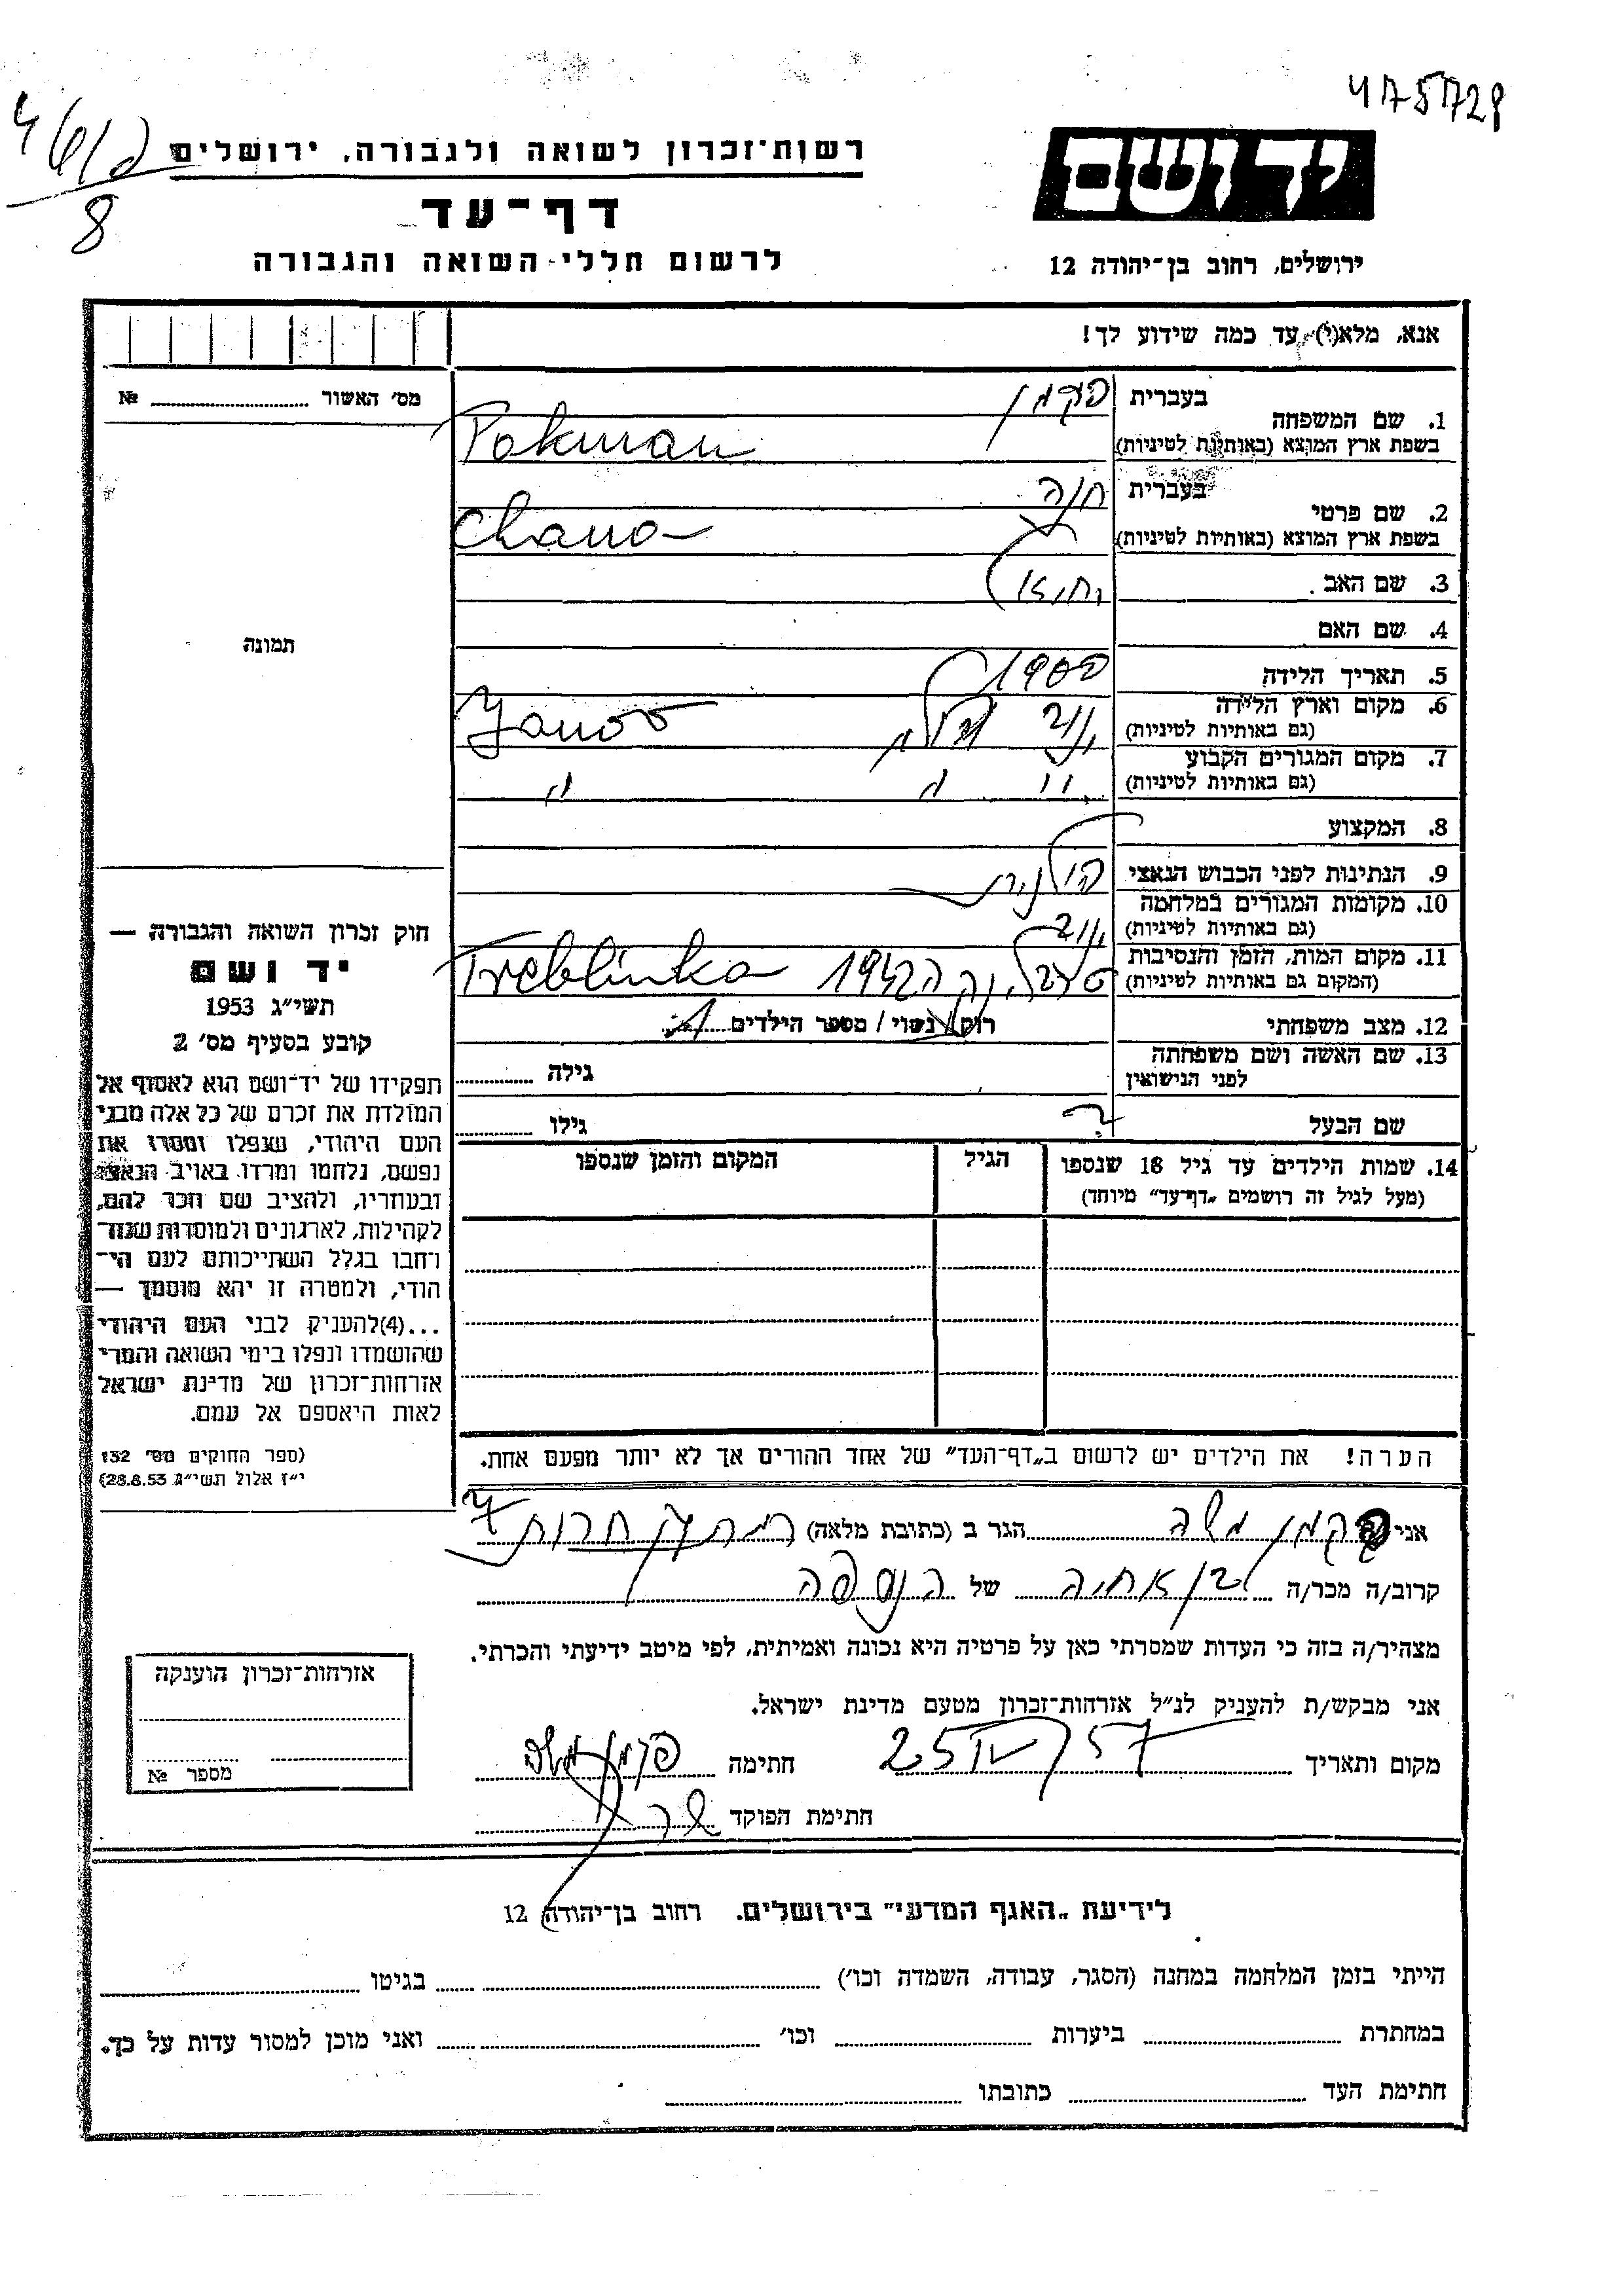 4175728
4/6/2
8
רשות־זכרון לשואה ולגבורה, ירושלים
דף־עד
לרשום חללי השואה והגבורה
יד ושם
ירושלים, רחוב בן־יהודה 12
אנא, מלא(י) עד כמה שידוע לך!
מס׳ האשור № 
תמונה
1. שם המשפחה בעברית פקמן
בשפת ארץ המוצא (באותיות לטיניות) Pokman
2. שם פרטי בעברית חנה
בשפת ארץ המוצא (באותיות לטיניות) Chana
3. שם האב
4. שם האם
5. תאריך הלידה 1900
6. מקום וארץ הלידה
(גם באותיות לטיניות) ינוב פולין Janow
7. מקום המגורים הקבוע
(גם באותיות לטיניות) " " "
8. המקצוע
9. הנתינות לפני הכבוש הנאצי פולנית
10. מקומות המגורים במלחמה
(גם באותיות לטיניות) ינוב
11. מקום המות, הזמן והנסיבות
(המקום גם באותיות לטיניות) טרבלינקה 1942 Treblinka
12. מצב משפחתי רוק/נשוי/מספר הילדים 1
13. שם האשה ושם משפחתה
לפני הנישואין גילה
שם הבעל ? גילו
14. שמות הילדים עד גיל 18 שנספו
(מעל לגיל זה רושמים „דף־עד” מיוחד)
הגיל
המקום והזמן שנספו
הערה! את הילדים יש לרשום ב„דף־העד” של אחד ההורים אך לא יותר מפעם אחת.
חוק זכרון השואה והגבורה —
יד ושם
תשי״ג 1953
קובע בסעיף מס׳ 2
תפקידו של יד־ושם הוא לאסוף אל
המולדת את זכרם של כל אלה מבני
העם היהודי, שנפלו ומסרו את
נפשם, נלחמו ומרדו באויב הנאצי
ובעוזריו, ולהציב שם וזכר להם,
לקהילות, לארגונים ולמוסדות שנח־
רבו בגלל השתייכותם לעם הי־
הודי, ולמטרה זו יהא מוסמך —
...(4)להעניק לבני העם היהודי
שהושמדו ונפלו בימי השואה והמרי
אזרחות־זכרון של מדינת ישראל
לאות היאספם אל עמם.
(ספר החוקים מס׳ 132
י״ז אלול תשי״ג 28.8.53)
אני פקמן משה הגר ב (כתובת מלאה) רמת גן חרות
קרוב/ה מכר/ה בן אחיה של הנספה
מצהיר/ה בזה כי העדות שמסרתי כאן על פרטיה היא נכונה ואמיתית, לפי מיטב ידיעתי והכרתי.
אני מבקש/ת להעניק לנ״ל אזרחות־זכרון מטעם מדינת ישראל.
מקום ותאריך 25 IV 57 חתימה פקמן משה
חתימת הפוקד
אזרחות־זכרון הוענקה
מספר №
לידיעת „האגף המדעי” בירושלים. רחוב בן־יהודה 12
הייתי בזמן המלחמה במחנה (הסגר, עבודה, השמדה וכו׳) בגיטו
במחתרת ביערות וכו׳ ואני מוכן למסור עדות על כך.
חתימת העד כתובתו